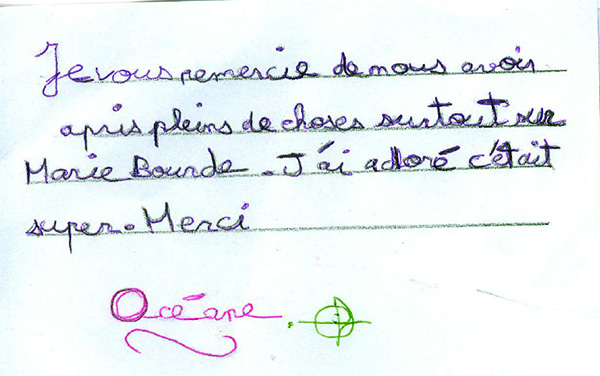 Je vous remercie de nous avoir
apris pleins de choses surtout sur
Marie Bourde. J'ai adoré c'était
super. Merci
Océane.